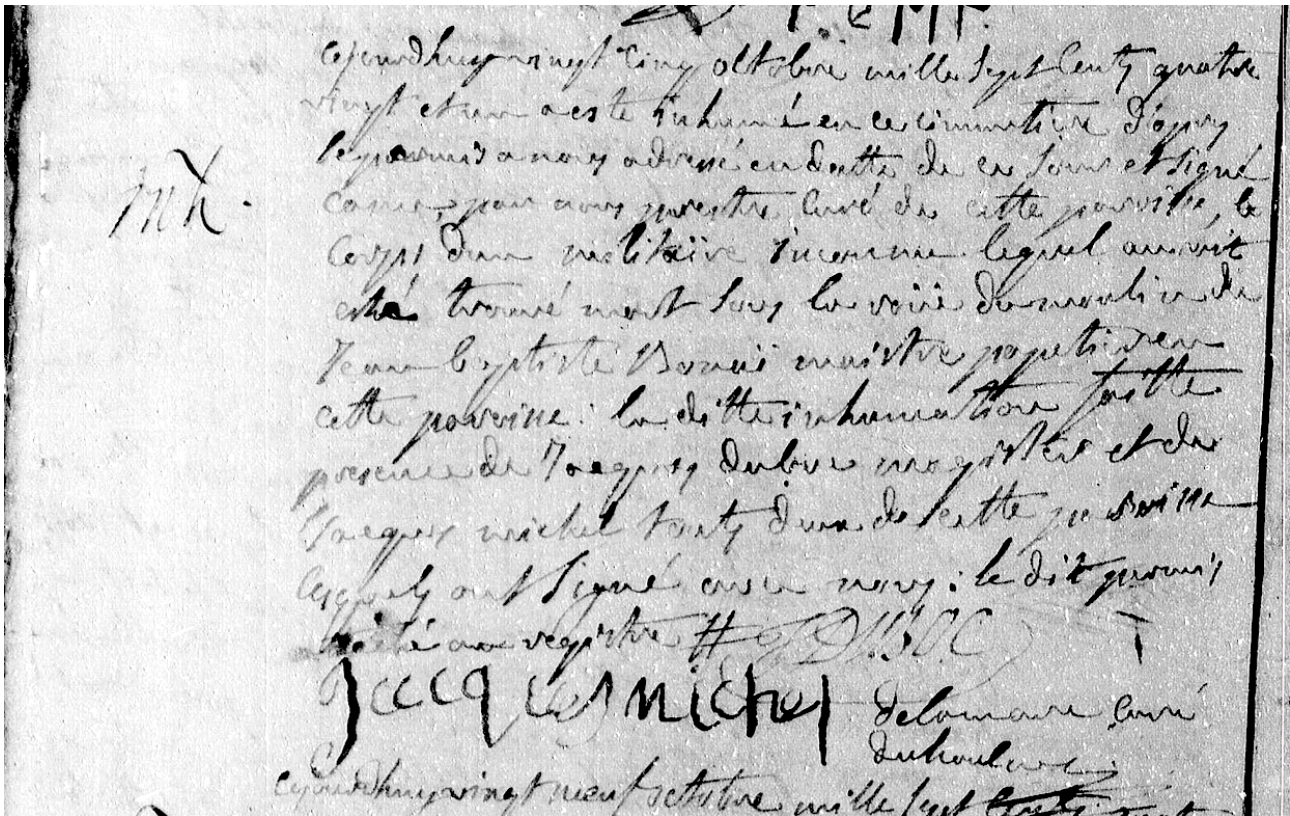 cejourdhuy vingt cinq octobre mille sept cents quatre
vingt et un a esté inhumé en ce cimmetiere d'apres
le permis a nous adressé en datte de ce jour et signé
par nous prestre curé de cette paroisse, le
corps d'un militaire inconnu lequel auroit
esté trouvé mort sous la du moulin de
Jean baptiste maistre papetier en
cette paroisse : la ditte inhumation faitte
presence de Jacques dubuc magister et de
Jacques michel touts deux de cette paroisse
lesquels ont signé avec nous : le dit permis
au registre # J DUBUC
jacques michel delamare curé
duhoulme
cejourdhuy vingt neuf octobre mille sept cents
Mh.